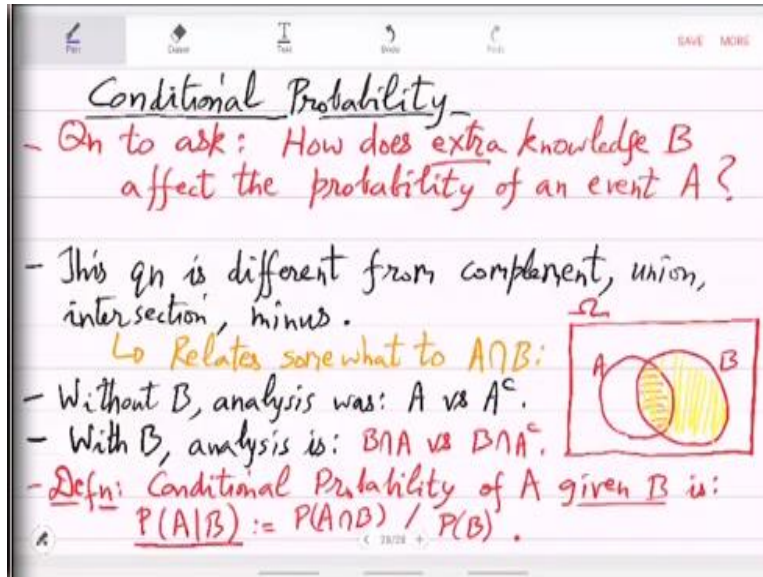 Pen Eraser Text Undo Redo SAVE MORE
Conditional Probability
- Qn to ask: How does extra knowledge B
affect the probability of an event A?
- This qn is different from complement, union,
intersection, minus.
↳ Relates somewhat to A∩B:
Ω
A B
- Without B, analysis was: A vs Aᶜ.
- With B, analysis is: B∩A vs B∩Aᶜ.
- Defn: Conditional Probability of A given B is:
P(A|B) := P(A∩B) / P(B).
< 28/28 +